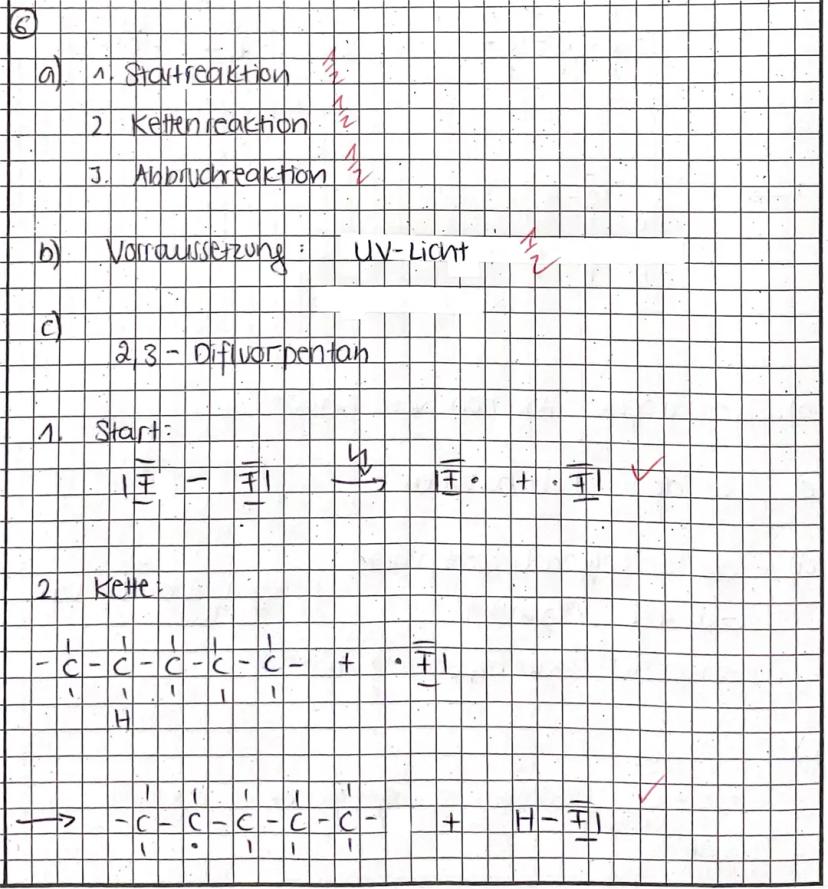 6
a) 1. Startreaktion 1/2
2 Kettenreaktion 1/2
3. Abbruchreaktion 1/2
b) Vorraussetzung: UV-Licht 1/2
c)
2,3 - Difluorpentan
1. Start:
|F - F| → |F• + •F| ✓
2. Kette:
-C-C-C-C-C- + •F|
H
→ -C-C-C-C-C- + H-F| ✓